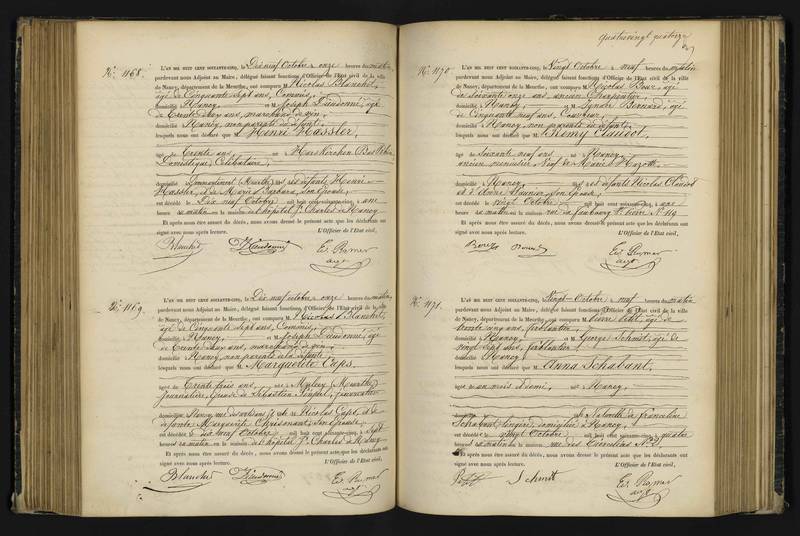 N° 1168.
L'AN MIL HUIT CENT SOIXANTE-CINQ, le Dix neuf Octobre à onze heures du matin,
pardevant nous Adjoint au Maire, délégué faisant fonctions d'Officier de l'Etat civil de la ville
de Nancy, département de la Meurthe, ont comparu M. Nicolas Blanchet,
âgé de Cinquante sept ans, Commis,
domicilié à Nancy, et M. Joseph Dieudonné, âgé
de Trente deux ans, marchand de vin,
domicilié à Nancy, non parents du défunt,
lesquels nous ont déclaré que M. Henri Hassler,
âgé de Trente ans, né à
Domestique, Célibataire,
domicilié à (Meurthe) des défunts Henri
Hassler, et de Marie Barbara, son Epouse,
est décédé le Dix neuf Octobre mil huit cent soixante-cinq, à une
heure du matin en la maison de l'hôpital St. Charles à Nancy
Et après nous être assuré du décès, nous avons dressé le présent acte que les déclarants ont
signé avec nous après lecture. L'Officier de l'Etat civil,
Blanchet Dieudonné
N° 1169.
L'AN MIL HUIT CENT SOIXANTE-CINQ, le Dix neuf octobre à onze heures du matin,
pardevant nous Adjoint au Maire, délégué faisant fonctions d'Officier de l'Etat civil de la ville
de Nancy, département de la Meurthe, ont comparu M. Nicolas Blanchet,
âgé de Cinquante sept ans, Commis,
domicilié à Nancy, et M. Joseph Dieudonné, âgé
de Trente deux ans, marchand de vin,
domicilié à Nancy, non parents de la défunte,
lesquels nous ont déclaré que M. Marguerite Cups,
âgée de Trente trois ans, née à (Meurthe)
Journalière, Epouse de Sébastien journalier
domiciliée à Nancy, rue et de Nicolas Cups, et de
défunte Marguerite son Epouse,
est décédée le dix neuf Octobre mil huit cent soixante-cinq, à sept
heures du matin en la maison de l'hôpital St. Charles à Nancy
Et après nous être assuré du décès, nous avons dressé le présent acte, que les déclarants ont
signé avec nous après lecture. L'Officier de l'Etat civil,
Blanchet Dieudonné
quatrevingt quatorze
N° 1170.
L'AN MIL HUIT CENT SOIXANTE-CINQ, le Vingt Octobre à neuf heures du matin
pardevant nous Adjoint au Maire, délégué faisant fonctions d'Officier de l'Etat civil de la ville
de Nancy, département de la Meurthe, ont comparu M. Nicolas
de soixante onze ans, ancien Charpentier
domicilié à Nancy, et M. Bernard, âgé
de Cinquante neuf ans, Couvreur,
domicilié à Nancy, non parents du défunt,
lesquels nous ont déclaré que M. Rémy Claudot,
âgé de soixante neuf ans né à Nancy
ancien menuisier, Veuf de Marie
domicilié à Nancy, des défunts Nicolas Claudot
et d' son Epouse,
est décédé le vingt Octobre mil huit cent soixante-cinq, à une
heure du matin en la maison rue du faubourg St. Pierre N° 119
Et après nous être assuré du décès, nous avons dressé le présent acte que les déclarants ont
signé avec nous après lecture. L'Officier de l'Etat civil,
N° 1171.
L'AN MIL HUIT CENT SOIXANTE-CINQ, le Vingt Octobre à neuf heures du matin
pardevant nous Adjoint au Maire, délégué faisant fonctions d'Officier de l'Etat civil de la ville
de Nancy, département de la Meurthe, ont comparu M. Pierre âgé de
trente cinq ans, ferblantier,
domicilié à Nancy, et M. Georges Schmit, âgé de
vingt sept ans, ferblantier
domicilié à Nancy
lesquels nous ont déclaré que M. Anna Schabant,
âgée de un mois & demi, née à Nancy,
domiciliée fille naturelle de Françoise
Schabant, lingère, domiciliée à Nancy,
est décédée le vingt Octobre mil huit cent soixante-cinq, à quatre
heures du matin en la maison rue des
Et après nous être assuré du décès, nous avons dressé le présent acte que les déclarants ont
signé avec nous après lecture. L'Officier de l'Etat civil,
Schmit